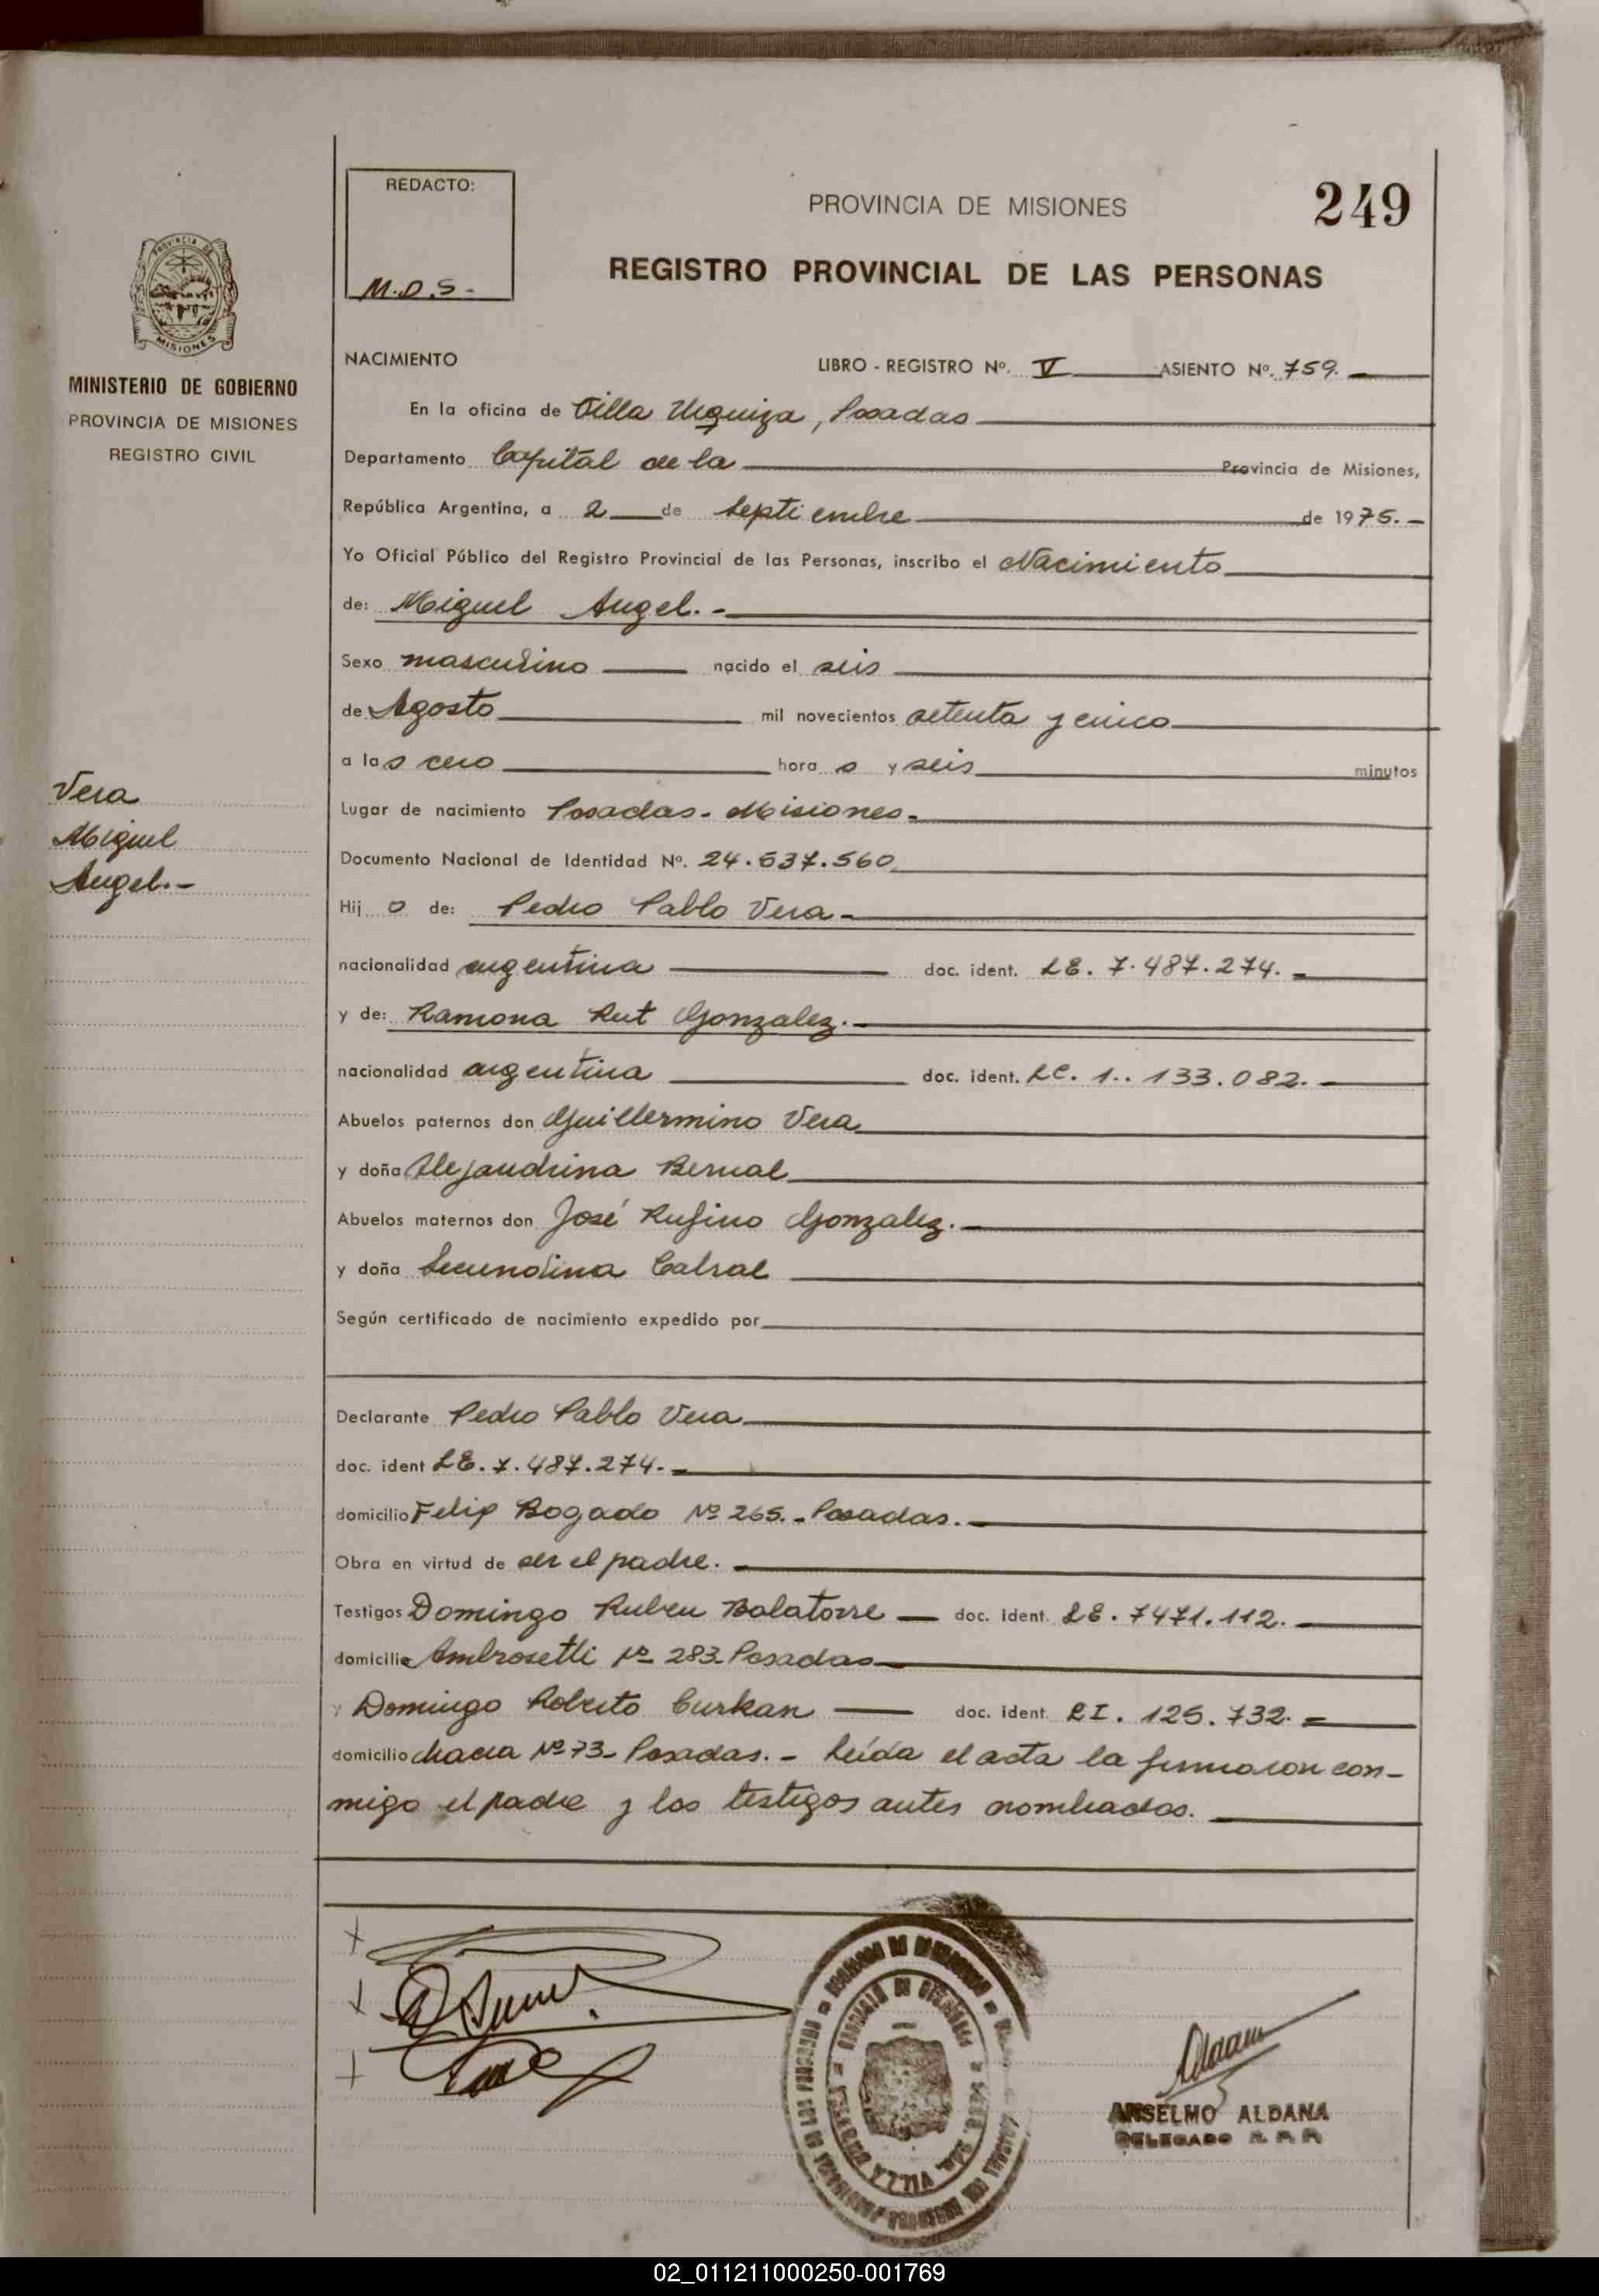 249
REDACTO:
M.D.S-
PROVINCIA DE MISIONES
REGISTRO PROVINCIAL DE LAS PERSONAS
PROVINCIA DE
MISIONES
MINISTERIO DE GOBIERNO
PROVINCIA DE MISIONES
REGISTRO CIVIL
Vera
Miguel
Angel.-
NACIMIENTO LIBRO - REGISTRO Nº. V ASIENTO Nº. 759.
En la oficina de Villa Urquiza, Posadas
Departamento Capital de la Provincia de Misiones,
República Argentina, a 2 de Septiembre de 1975.-
Yo Oficial Público del Registro Provincial de las Personas, inscribo el Nacimiento
de: Miguel Angel.-
Sexo masculino nacido el seis
de Agosto mil novecientos setenta y cinco
a las cero hora s y seis minutos
Lugar de nacimiento Posadas- Misiones-
Documento Nacional de Identidad Nº. 24.537.560
Hij o de: Pedro Pablo Vera-
nacionalidad argentina doc. ident. LE. 7.487.274.-
y de: Ramona Rut Gonzalez.-
nacionalidad argentina doc. ident. LC. 1..133.082.-
Abuelos paternos don Guillermino Vera
y doña Alejandrina Bernal
Abuelos maternos don José Rufino Gonzalez.-
y doña Secundina Cabral
Según certificado de nacimiento expedido por
Declarante Pedro Pablo Vera
doc. ident LE. 7.487.274.-
domicilio Felip Bogado Nº 265.-Posadas.-
Obra en virtud de ser el padre.-
Testigos Domingo Ruben Balatorre doc. ident. LE. 7471.112.-
domicilio Ambrosetti Nº 283-Posadas
y Domingo Roberto Curkan doc. ident. LI. 125.732.-
domicilio chacra Nº 73- Posadas.- Leída el acta la firmaron con-
migo el padre y los testigos antes nombrados.
ANSELMO ALDANA
DELEGADO R.P.P.
02_011211000250-001769